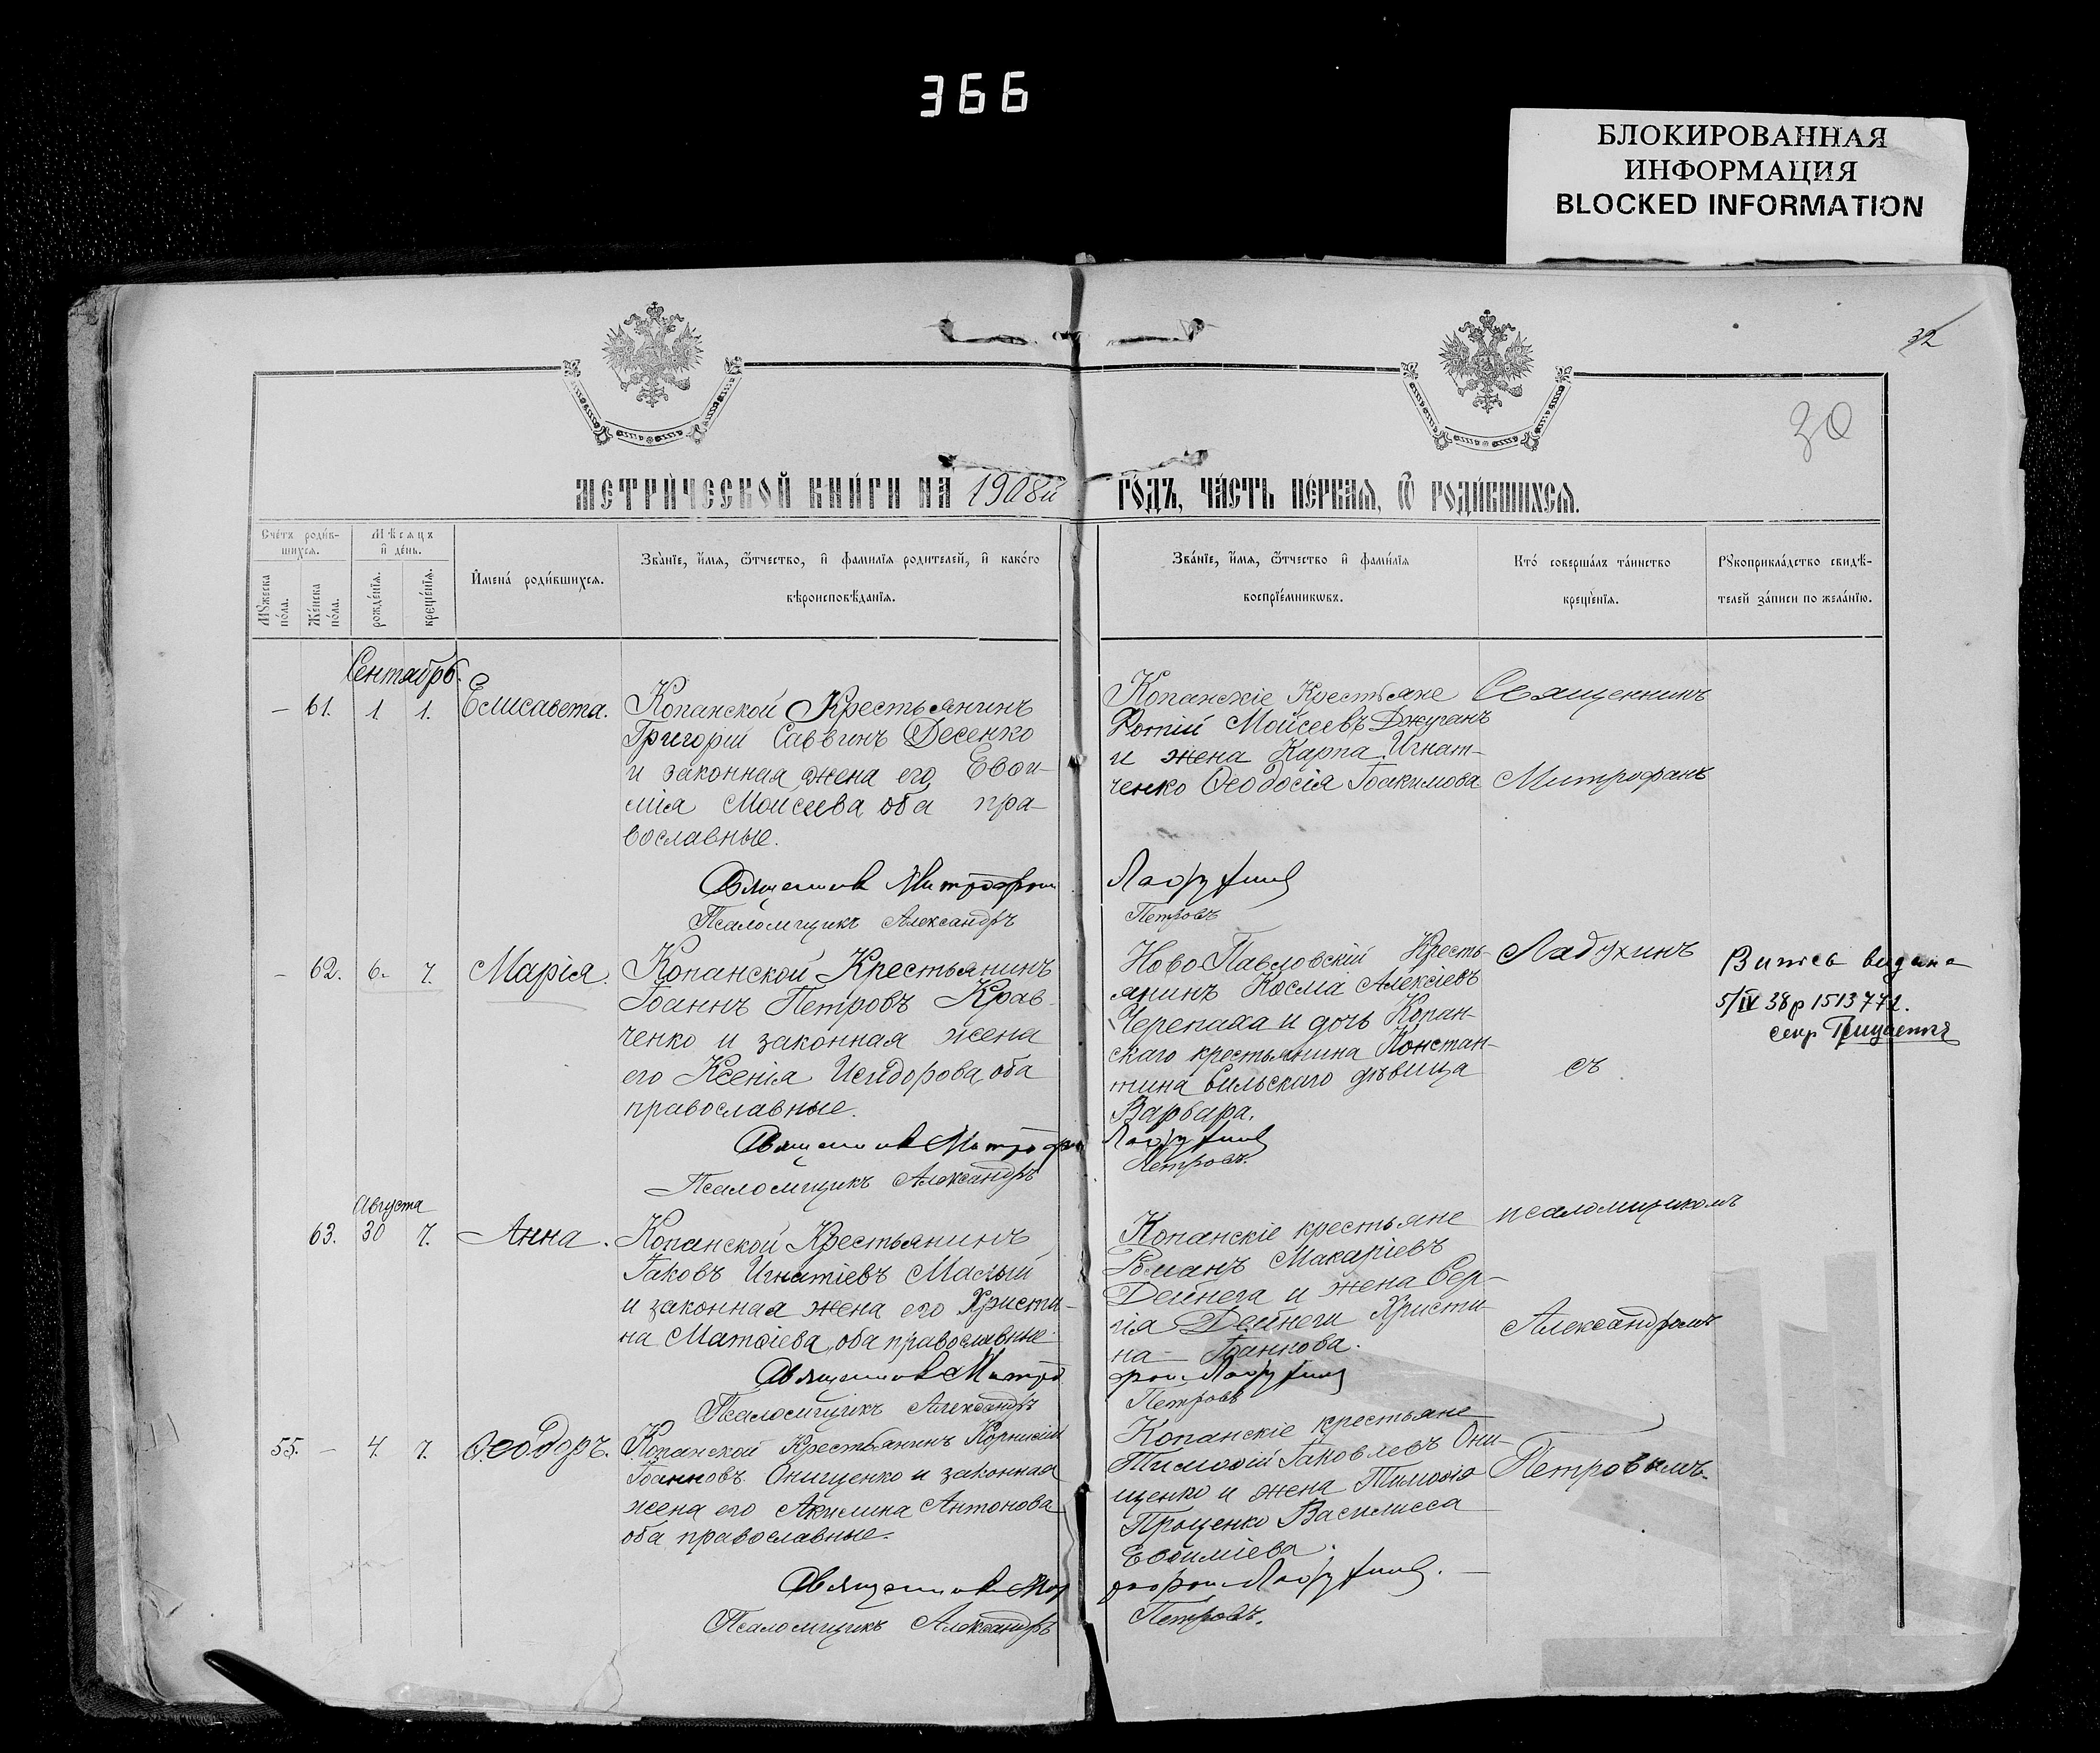 366
БЛОКИРОВАННАЯ
ИНФОРМАЦИЯ
BLOCKED INFORMATION
32
30
МЕТРИ́ЧЕСКОЙ КНИ́ГИ НА 1908й
ГО́ДЪ, ЧА́СТЬ ПЕ́РВАЯ, Ѿ РОДИ́ВШИХСЯ.
Сче́тъ роди́в-
шихся.
Мꙋжеска по́ла.
Же́нска по́ла.
Мѣсяцъ
и҆ де́нь.
рожде́нїя.
креще́нїя.
И҆мена́ роди́вшихся.
Зва́нїе, и҆́мя, ѻ҆́тчество, и҆ фамилїя родителей, и҆ како́го
вѣроисповѣ́данїя.
Зва́нїе, и҆́мя, ѻ҆́тчество и҆ фами́лїя
воспрїе́мникѡвъ.
Кто́ соверша́лъ та́инство
креще́нїя.
Рꙋкоприкла́дство свидѣ́-
телей за́писи по жела́нїю.
Сентябрь.
— 61. 1 1. Елисавета.
Копанской Крестьянинъ
Григорій Саввинъ Десенко
и законная жена его Евѳи-
мія Моисеева, оба пра-
вославные.
Священникъ Митрофан
Псаломщикъ Александръ
Копанскіе Крестьяне
Фотій Мойсеевъ Джуганъ
и жена Карпа Игнат-
ченко Ѳеодосія Іоакимова
Петровъ
Священникъ
Митрофанъ
Ладухинъ
съ
псаломщикомъ
Александромъ
Петровымъ.
— 62. 6. 7. Марія.
Копанской Крестьянинъ
Іоаннъ Петровъ Крав-
ченко и законная жена
его Ксенія Исидорова, оба
православные.
Священникъ Митрофан
Псаломщикъ Александръ
Ново-Павловскій Кресть-
янинъ Косма Алексіевъ
Черепаха и дочь Копан-
скаго крестьянина Констан-
тина Сильскаго дѣвица
Варвара.
Петровъ.
5/IV 38р 1513772.
Августа
63. 30 7. Анна.
Копанской Крестьянинъ
Іаковъ Игнатіевъ Малый
и законная жена его Христи-
на Матѳіева, оба православные.
Священникъ Митро
Псаломщикъ Александръ
Копанскіе крестьяне
Романъ Макаріевъ
Дейнега и жена Сер-
гія Дейнеги Христи-
на Іоаннова.
Петровъ
55. — 4 7. Ѳеодоръ.
Копанской Крестьянинъ Корнилій
Іоанновъ Онищенко и законная
жена его Акилина Антонова
оба православные.
Священникъ
Псаломщикъ Александръ
Копанскіе крестьяне
Тимоѳій Іаковлевъ Они-
щенко и жена Тимоѳія
Проценко Василисса
Евѳиміева.
Петровъ.